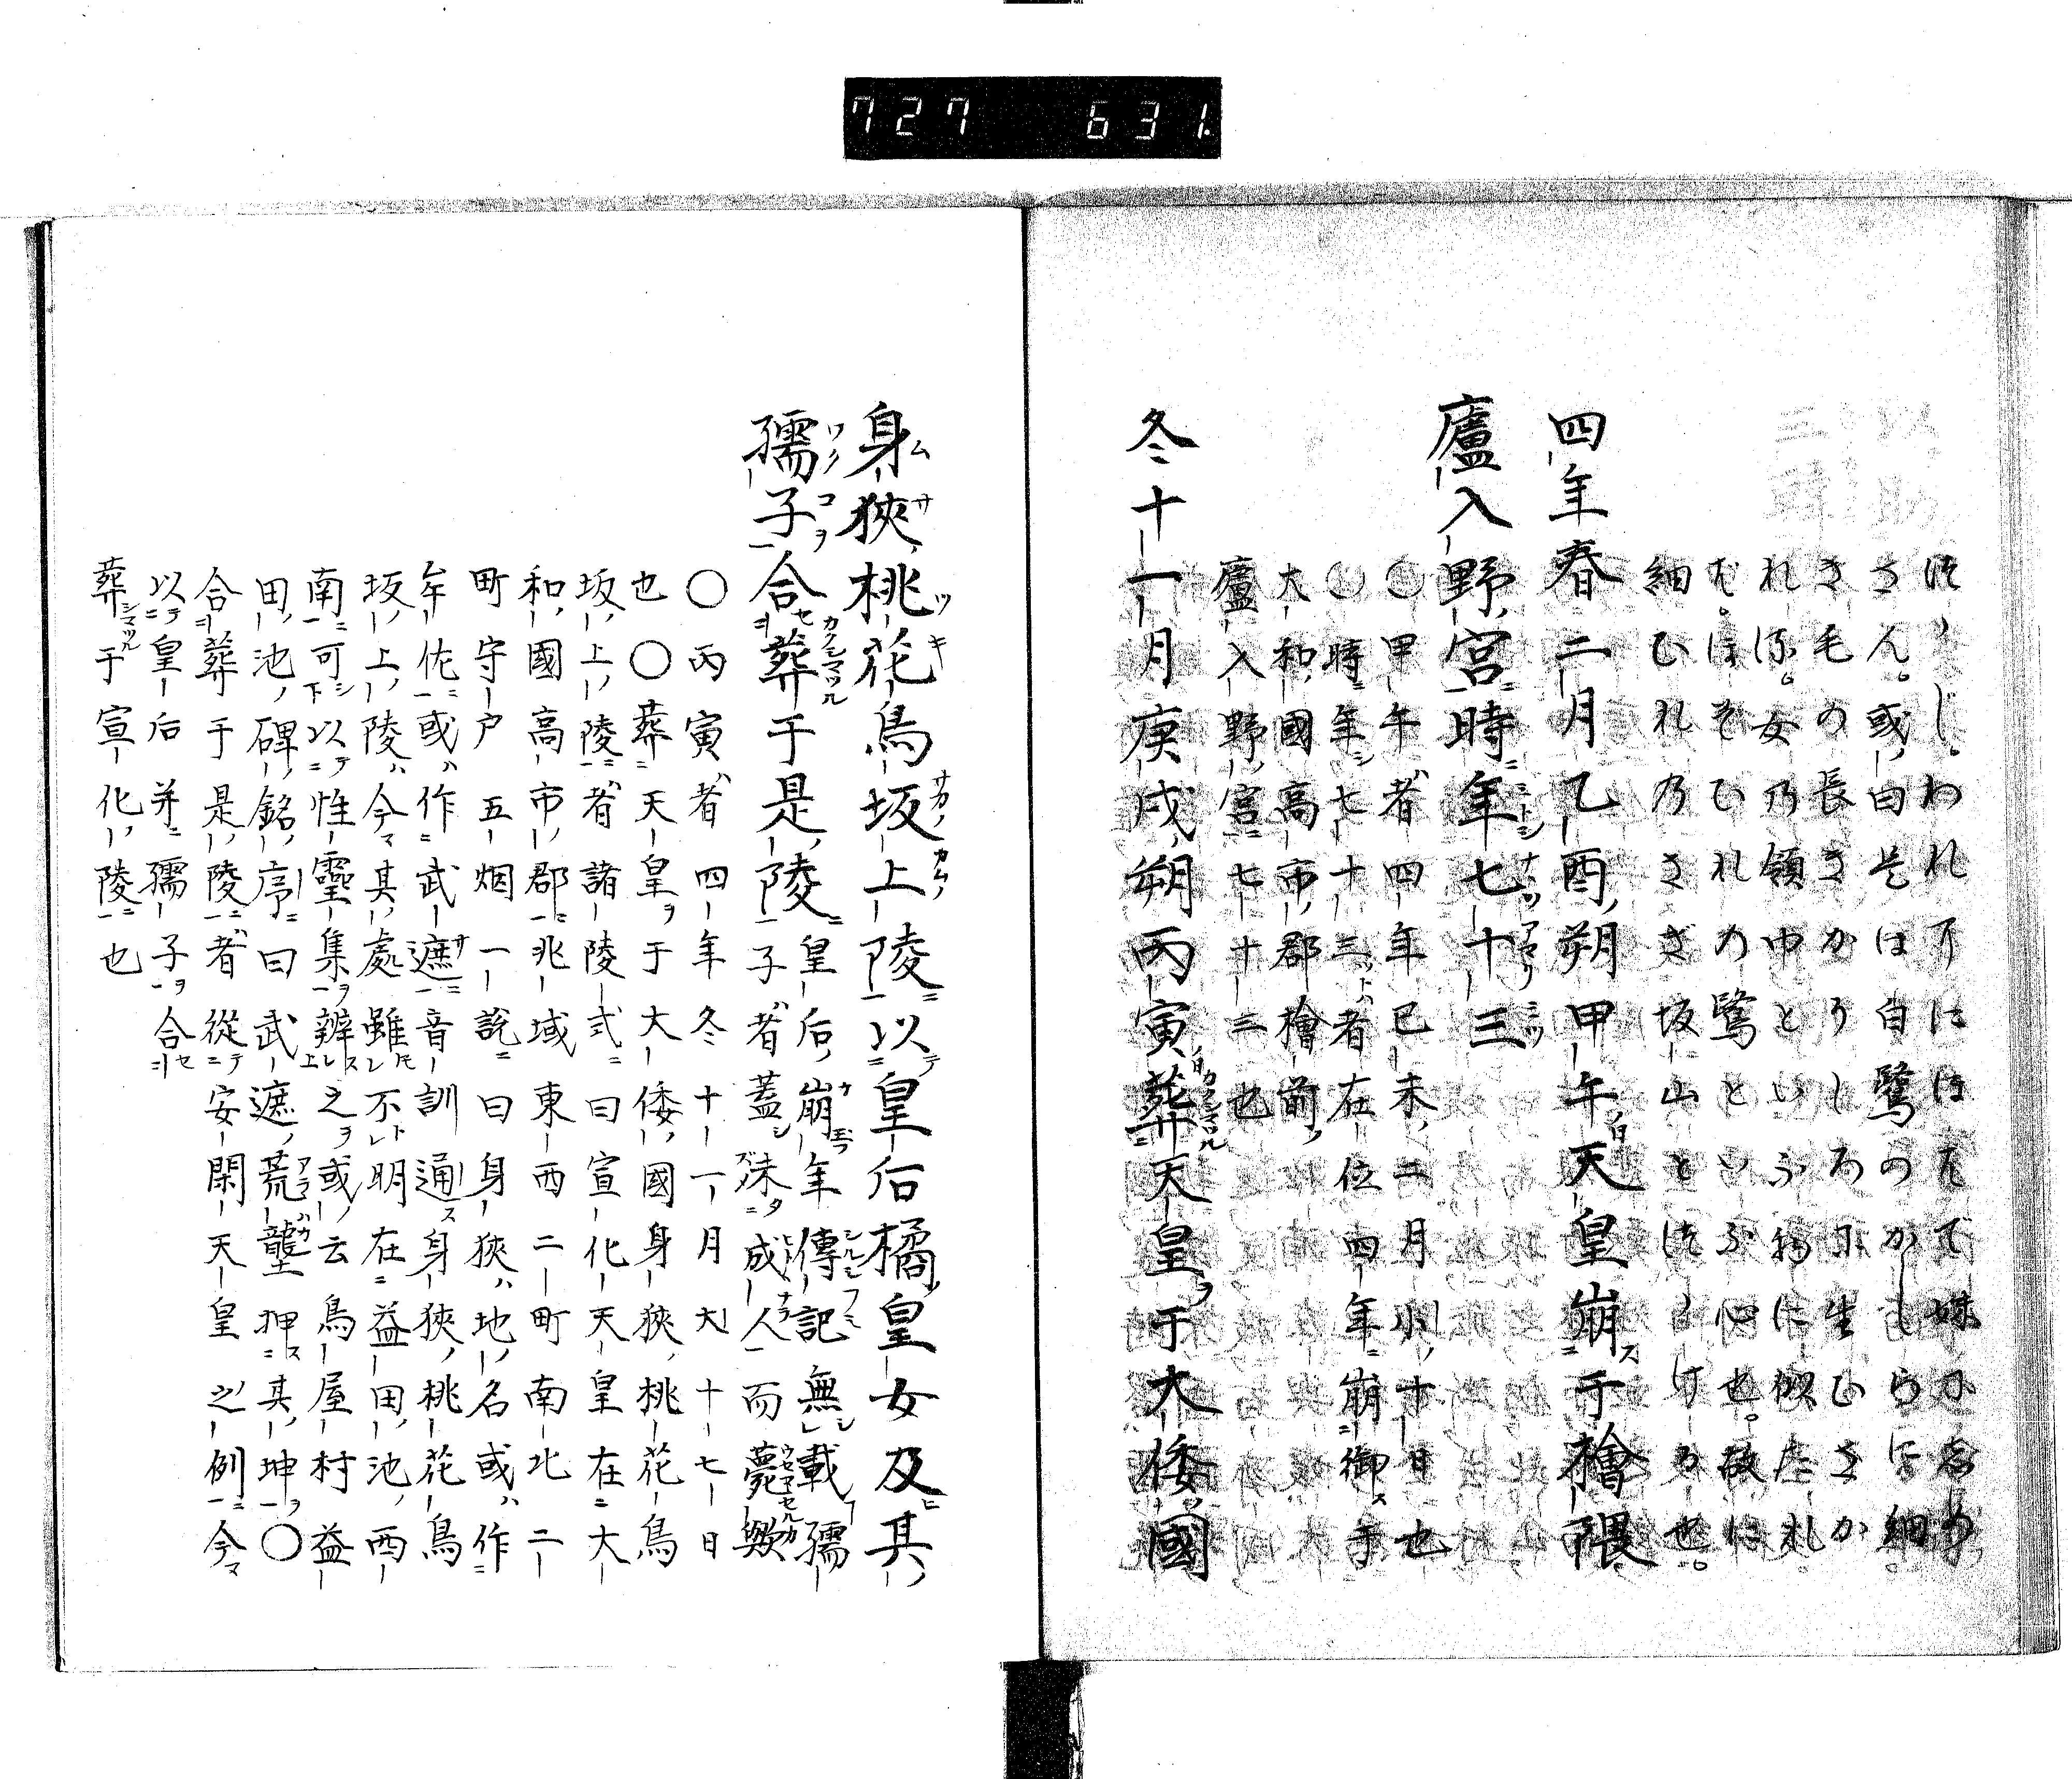 727 631.
さん。或曰是は白鷺のかしらに細
き毛の長きさかりしろに生ひさか
むほそひれの鷺といふ心也。故に
細ひれのさぎ坂山とつゝけゝる也。
四年春二月乙酉朔甲午天皇崩于檜隈
廬入野宮時年七十三
〇甲午者四年己未二月小十日也
〇時年七十三者在位四年崩御于
大和國高市郡檜前
廬入野宮七十三也
冬十一月庚戌朔丙寅葬天皇于大倭國
身狹桃花鳥坂上陵以皇后橘皇女及其
孺子合葬于是陵皇后崩年傳記無載孺
子者蓋未成人而薨歟
〇丙寅者四年冬十一月大十七日
也〇葬天皇于大倭國身狹桃花鳥
坂上陵者諸陵式曰宣化天皇在大
和國高市郡兆域東西二町南北二
町守戸五烟一說曰身狹地名或作
牟佐或作武遮音訓通身狹桃花鳥
坂上陵今其處雖不明在益田池西
南可以惟靈集辨之或云鳥屋村益
田池碑銘序曰武遮荒壟押其坤〇
合葬于是陵者從安閑天皇之例今
以皇后并孺子合
葬于宣化陵也